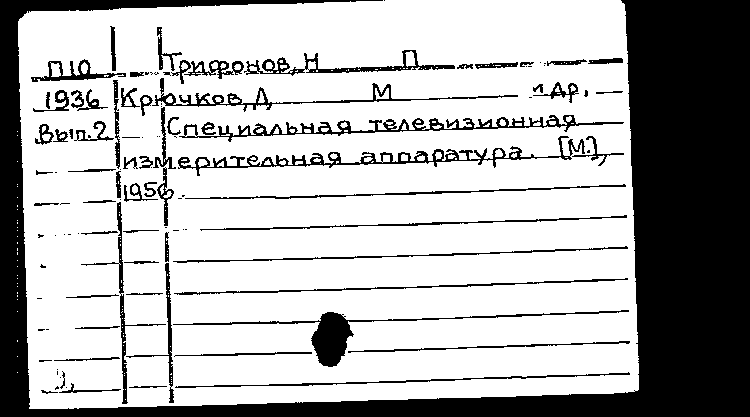 П10 Трифонов, Н П
1936 Крючков, Д М и др.
Вып.2 Специальная телевизионная
измерительная аппаратура. [М.],
1956.